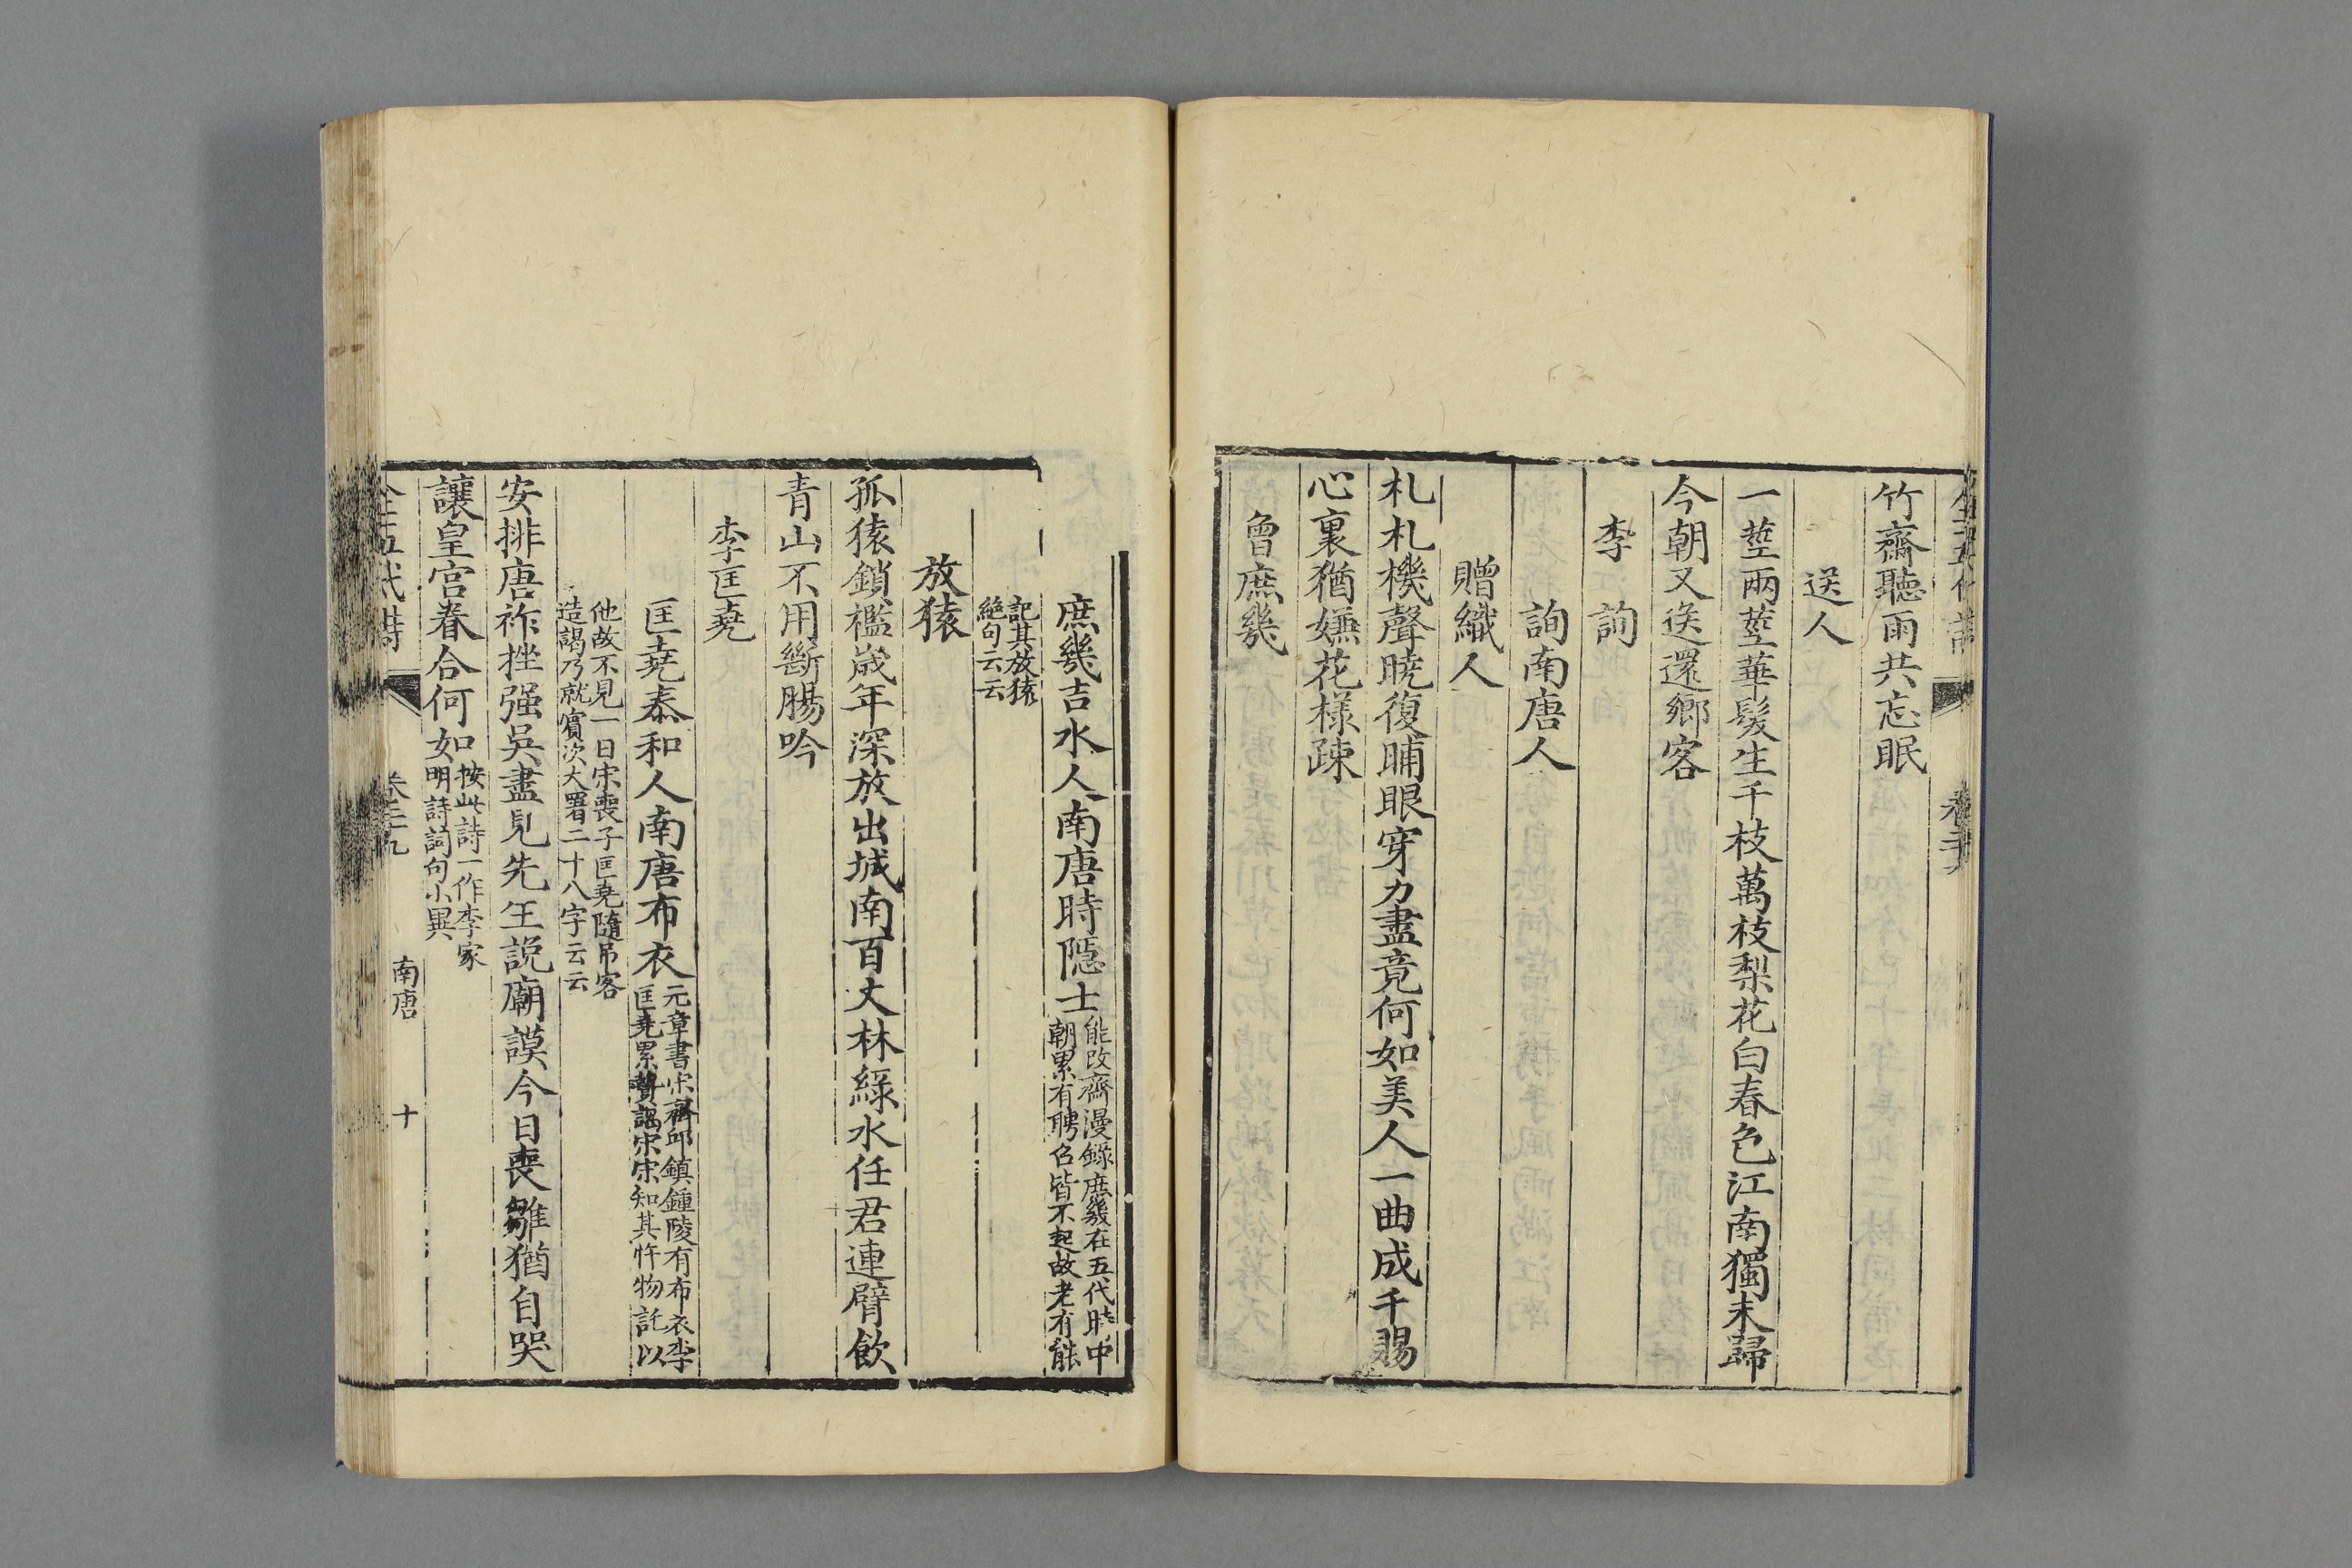 竹齋聽雨共忘眠
送人
一莖兩莖華髮生千枝萬枝梨花白春色江南獨未歸
今朝又送還鄉客
李詢
詢南唐人
贈織人
札札機聲曉復晡眼穿力盡竟何如美人一曲成千賜
心裏猶嫌花樣疎
曾庶幾
庶幾吉水人南唐時隱士
能改齋漫錄庶幾在五代時中
朝累有聘召皆不起故老有能
記其放猿
絕句云云
放猿
孤猿鎖檻歲年深放出城南百丈林綠水任君連臂飲
青山不用斷腸吟
李匡堯
匡堯泰和人南唐布衣
元章書宋齊邱鎮鍾陵有布衣李
匡堯累贄謁宋宋知其忤物託以
他故不見一日宋喪子匡堯隨吊客
造謁乃就賓次大署二十八字云云
安排唐祚挫强吳盡見先生說廟謨今日喪雛猶自哭
讓皇宮眷合何如
按此詩一作李家
明詩詞句小異
全五代詩
卷三九
南唐
十